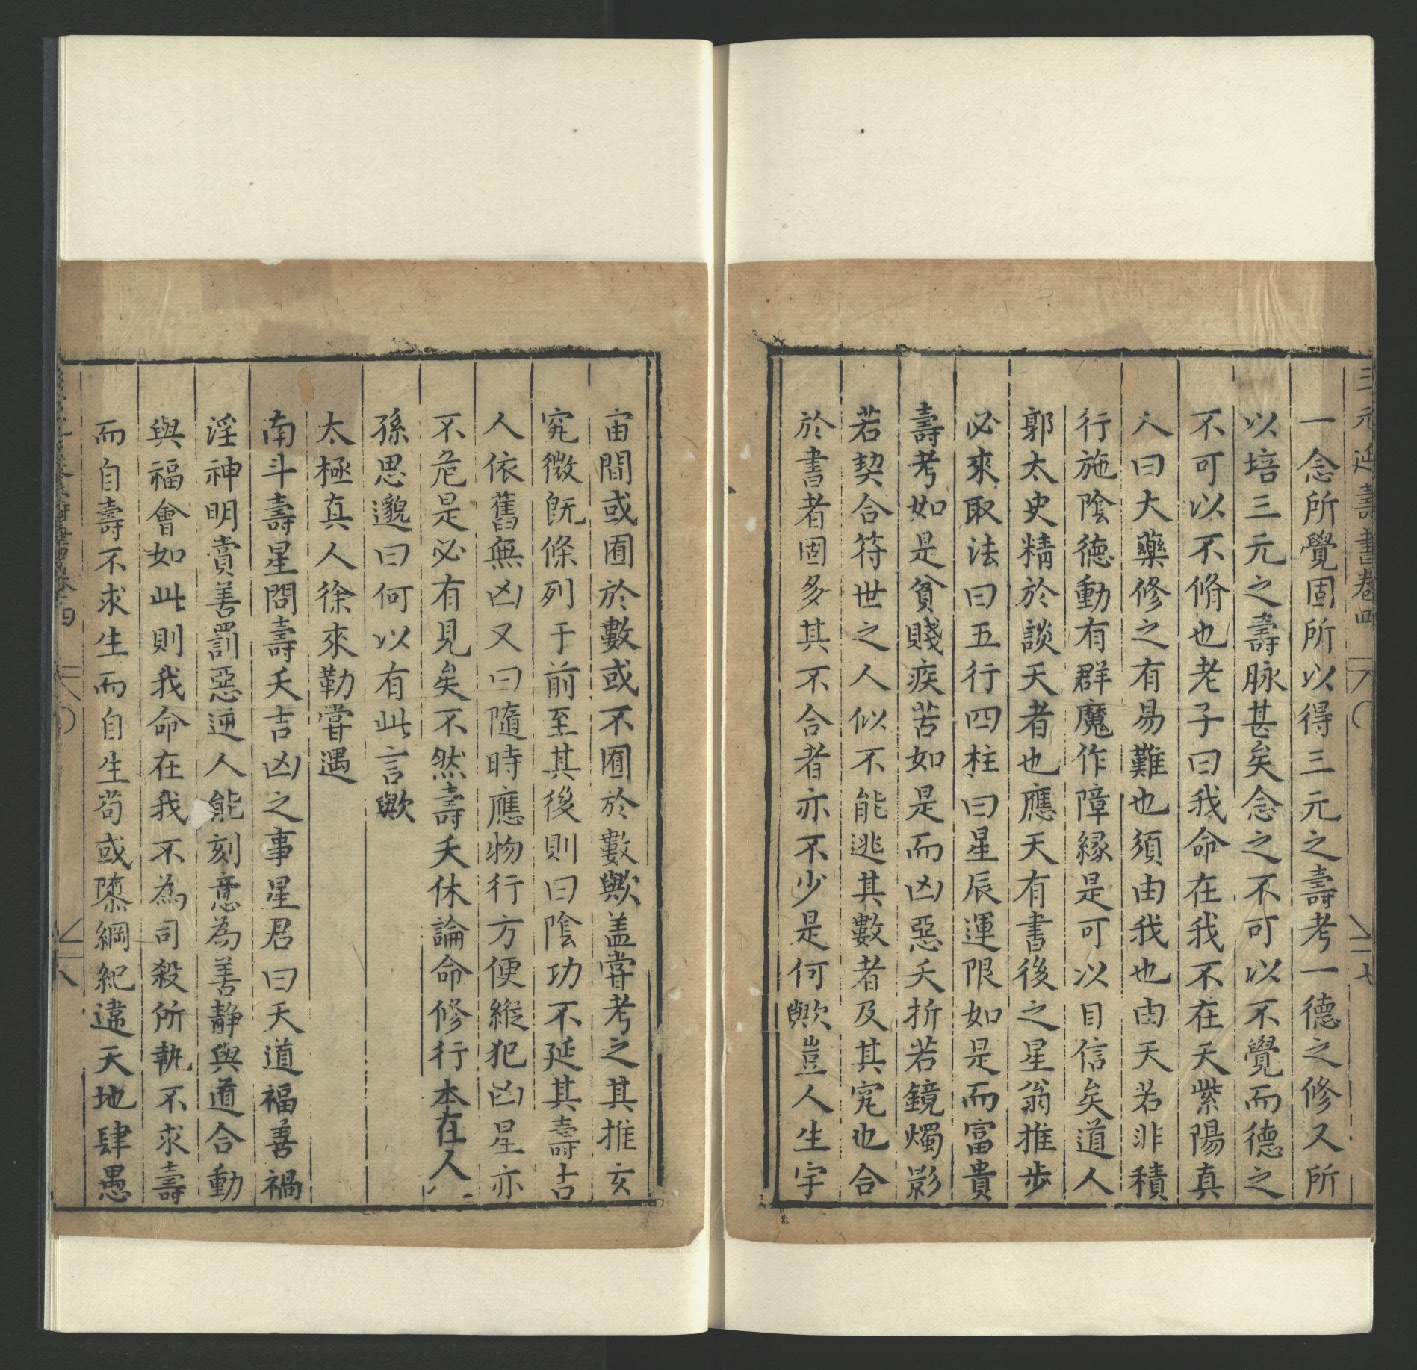 三元延壽書卷四
一念所覺固所以得三元之壽考一德之修又所
以培三元之壽脉甚矣念之不可以不覺而德之
不可以不脩也老子曰我命在我不在天紫陽真
人曰大藥修之有易難也須由我也由天若非積
行施陰德動有群魔作障緣是可以目信矣道人
郭太史精於談天者也應天有書後之星翁推步
必來取法曰五行四柱曰星辰運限如是而富貴
壽考如是貧賤疾苦如是而凶惡夭折若鏡燭影
若契合符世之人似不能逃其數者及其究也合
於書者固多其不合者亦不少是何歟豈人生宇
宙間或囿於數或不囿於數歟盖甞考之其推玄
究微既條列于前至其後則曰陰功不延其壽吉
人依舊無凶又曰隨時應物行方便縱犯凶星亦
不危是必有見矣不然壽夭休論命修行本在人
孫思邈曰何以有此言歟
太極真人徐來勒甞遇
南斗壽星問壽夭吉凶之事星君曰天道福善禍
淫神明賞善罰惡逆人能刻意為善靜與道合動
與福會如此則我命在我不為司殺所執不求壽
而自壽不求生而自生苟或隳綱紀違天地肆愚